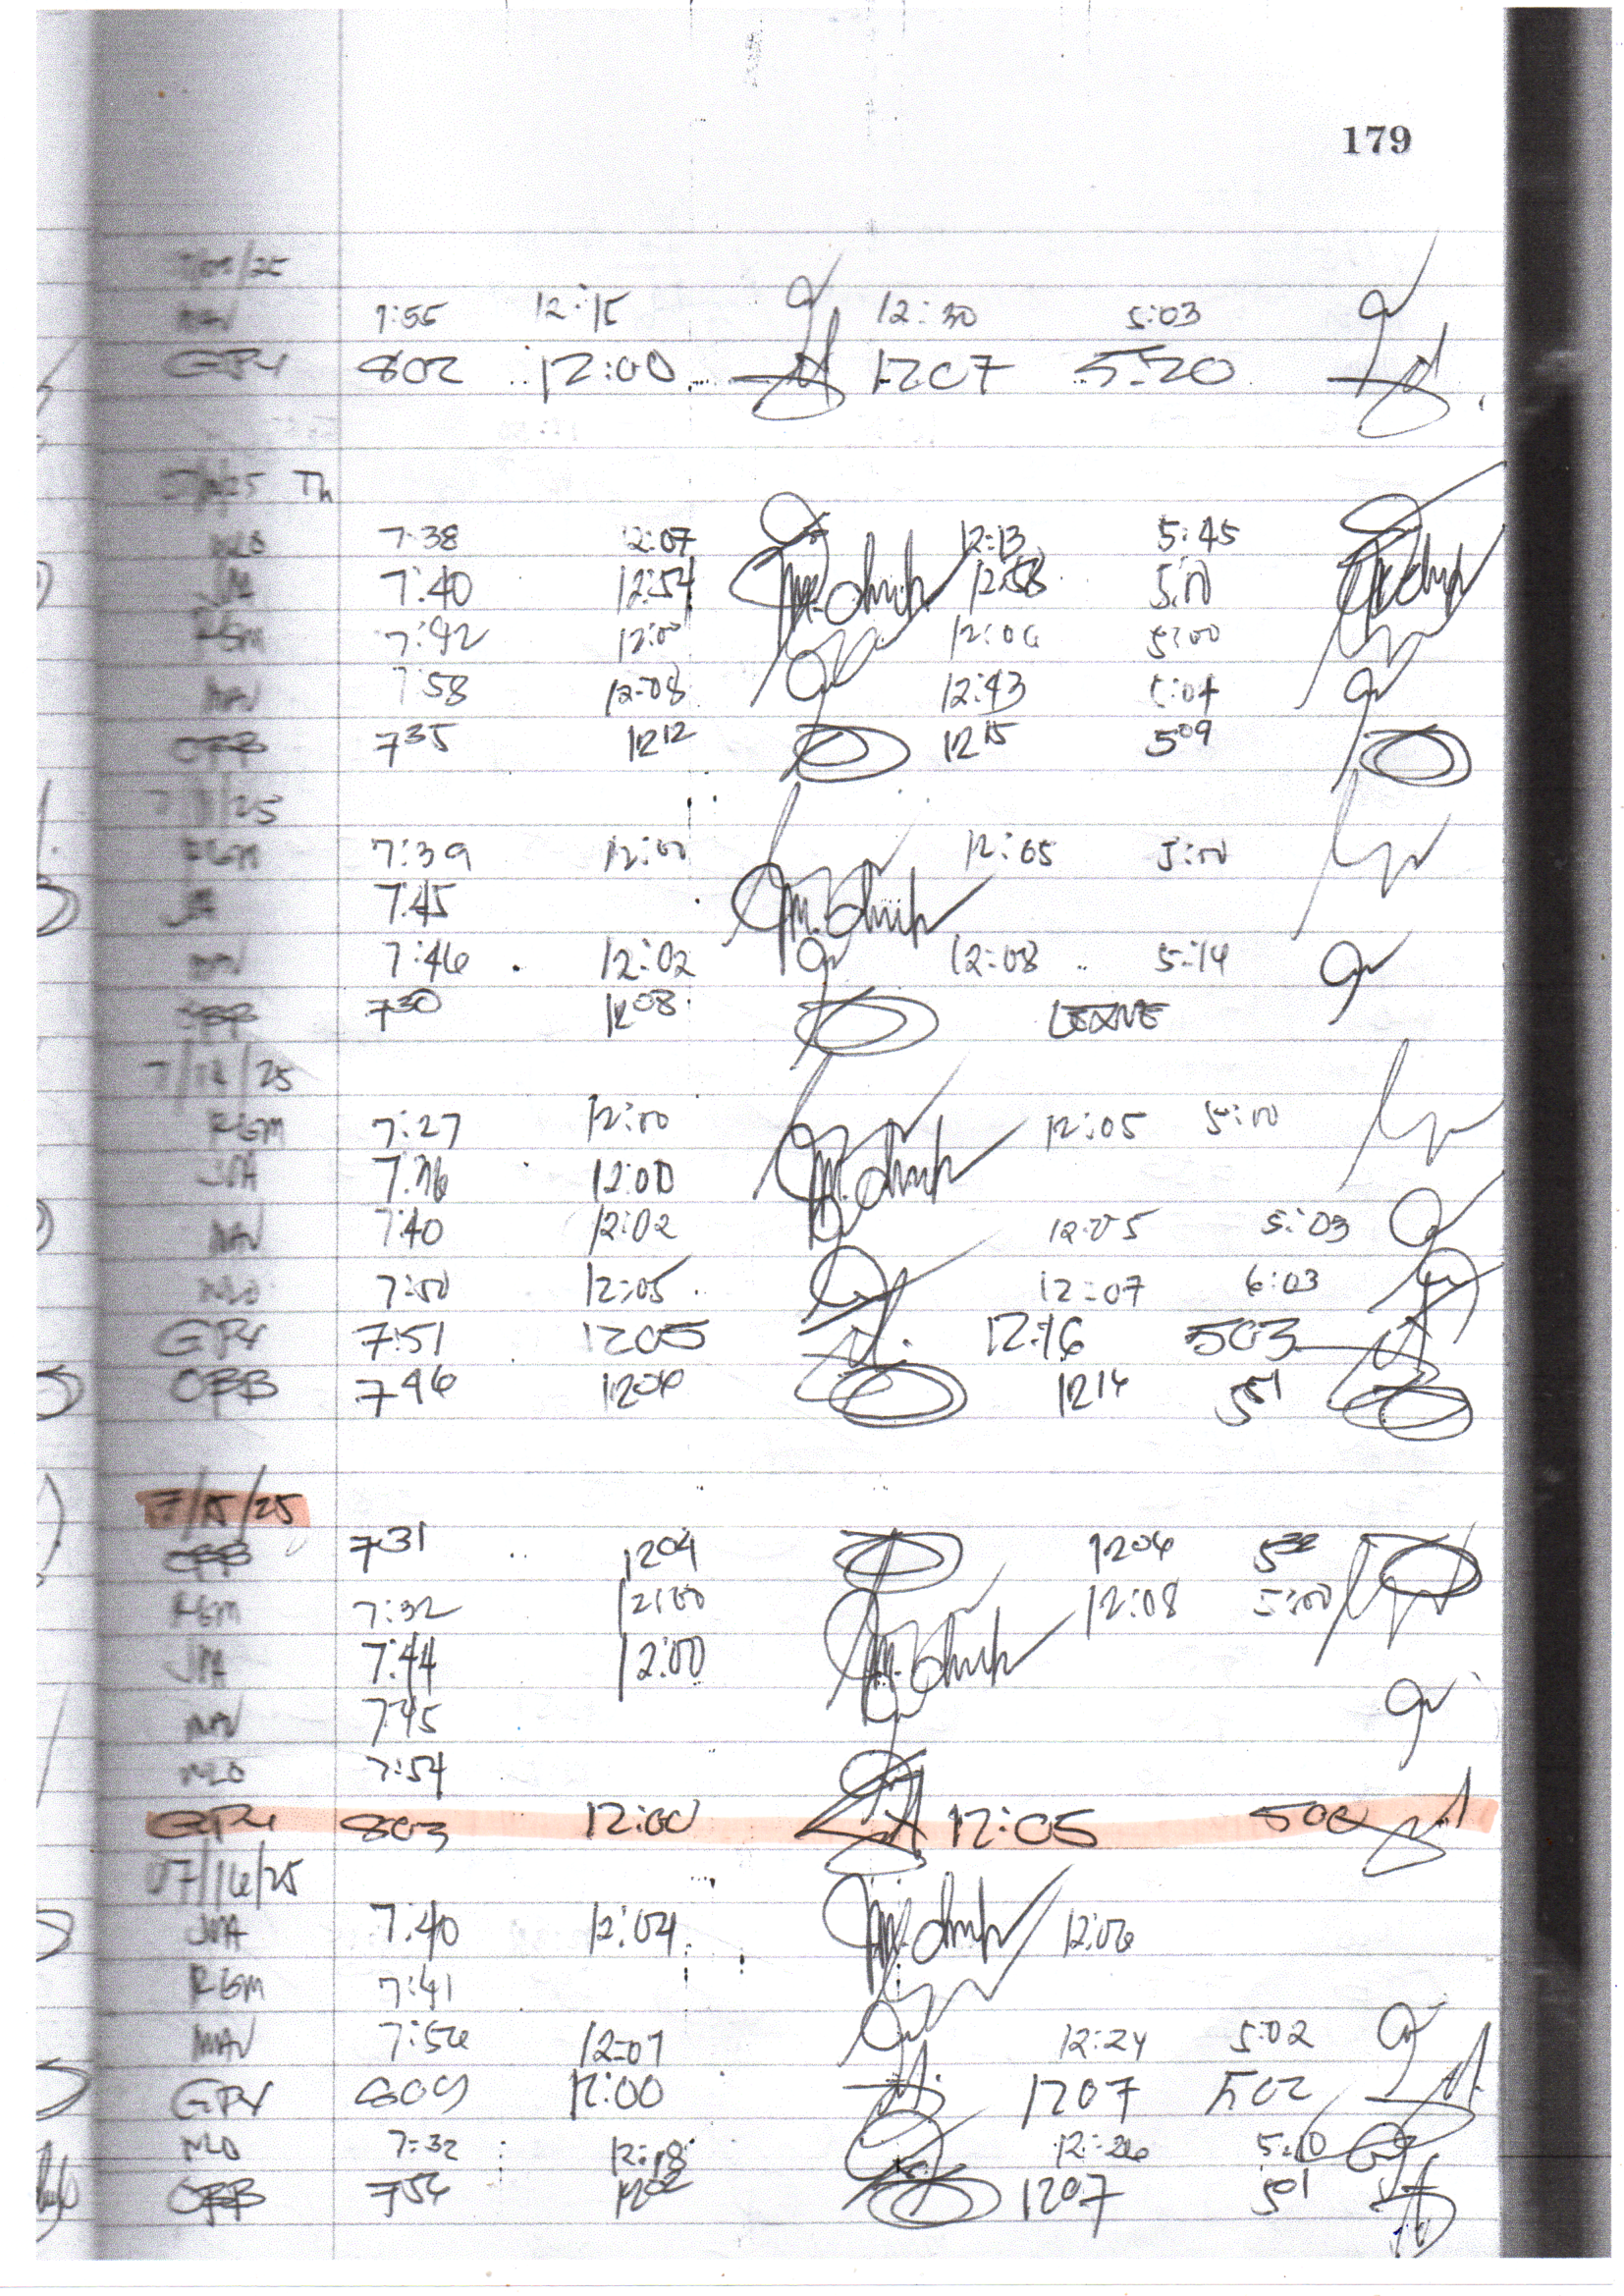 179
/25
MAV 7:55 12:15 12:30 5:03
GPY 802 12:00 1207 5:20
/25 Th
MLO 7:38 12:07 12:13 5:45
JMA 7:40 12:54 12:58 5:00
RGM 7:42 12:00 12:06 5:00
MAV 7:58 12:08 12:43 5:04
OBB 7 35 12 12 12 15 5 09
7/11/25
RGM 7:39 12:00 12:05 5:00
JMA 7:45
MAV 7:46 12:02 12:08 5:14
OBB 7 30 12 08 LEAVE
7/14/25
RGM 7:27 12:00 12:05 5:00
JMA 7:36 12:00
MAV 7:40 12:02 12:05 5:03
MLO 7:50 12:05 12:07 6:03
GPY 7:51 1205 12:16 503
OBB 7 46 12 06 12 14 5 01
7/15/25
OBB 7 31 12 04 12 06 5 32
RGM 7:32 12:00 12:08 5:00
JMA 7:44 12:00
MAV 7:45
MLO 7:54
GPY 803 12:00 12:05 500
07/16/25
JMA 7:40 12:04 12:06
RGM 7:41
MAV 7:56 12:07 12:24 5:02
GPY 809 12:00 1207 502
MLO 7:32 12:18 12:26 5:10
OBB 7 56 12 02 12 07 5 01